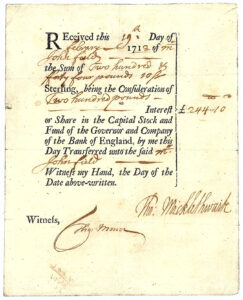 Received this 19th Day of
1712 of Mr
John Field
the Sum of Two hundred &
forty four pounds 10s
Sterling, being the Consideration of
Two hundred pounds
Interest £244-10
or Share in the Capital Stock and
Fund of the Governor and Company
of the Bank of England, by me this
Day Transferred unto the said Mr
John Field
Witness my Hand, the Day of the
Date above-written.
Tho: Micklethwaite
Witness,